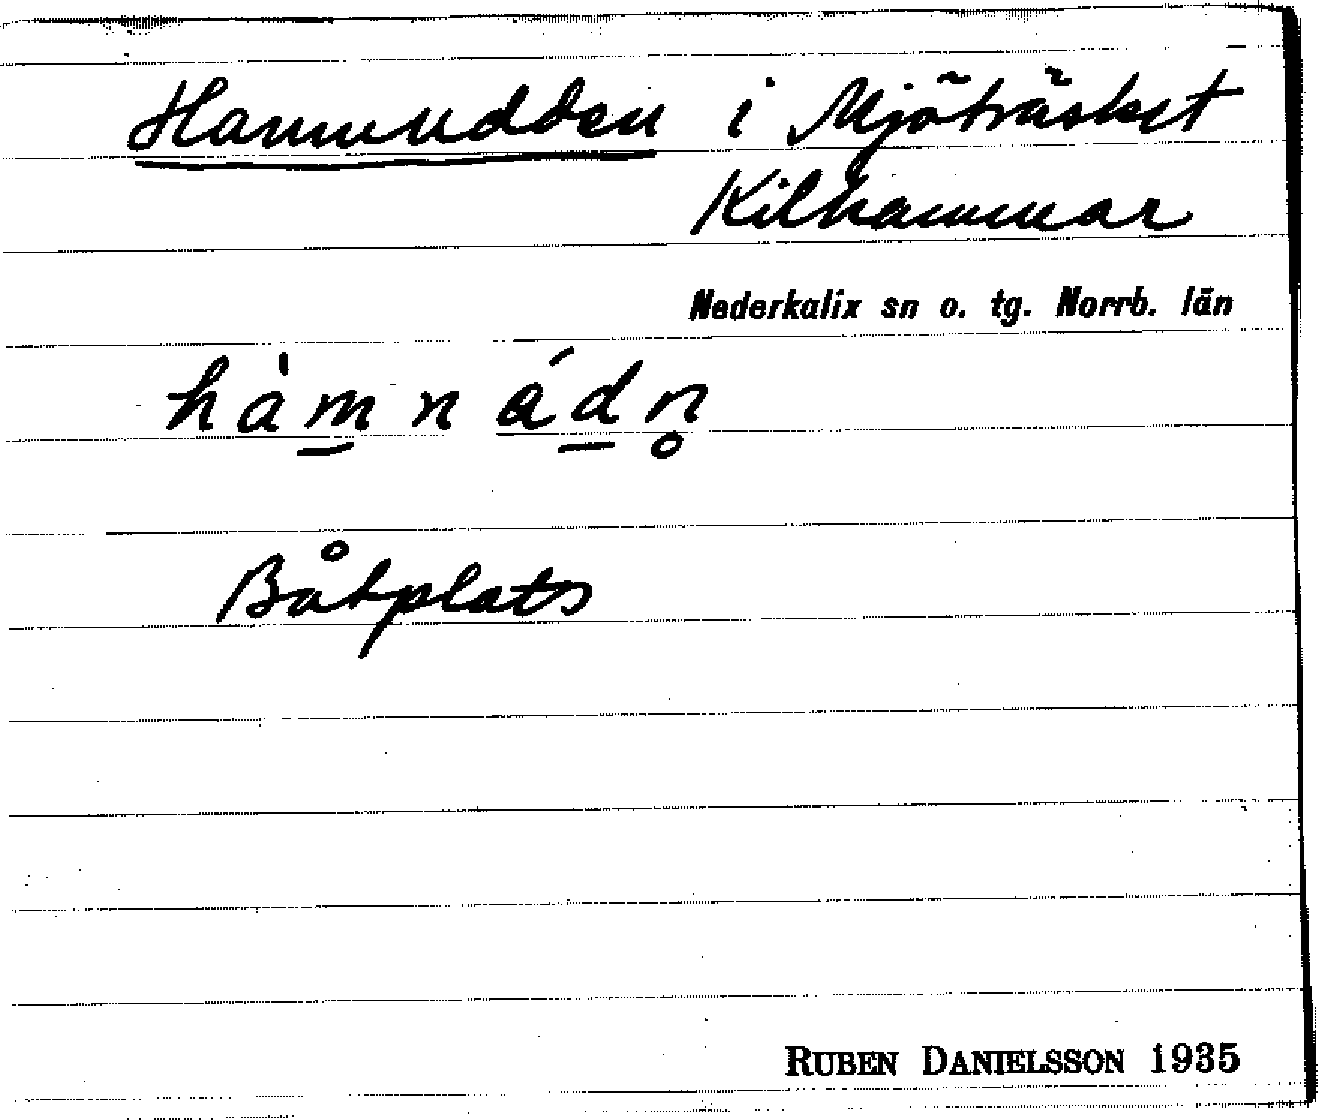 Hamnudden i Mjöträsket
Kilhammar
Nederkalix sn o. tg. Norrb. län
hà m̲ n á d̲ n̥
Båtplats
RUBEN DANIELSSON 1935